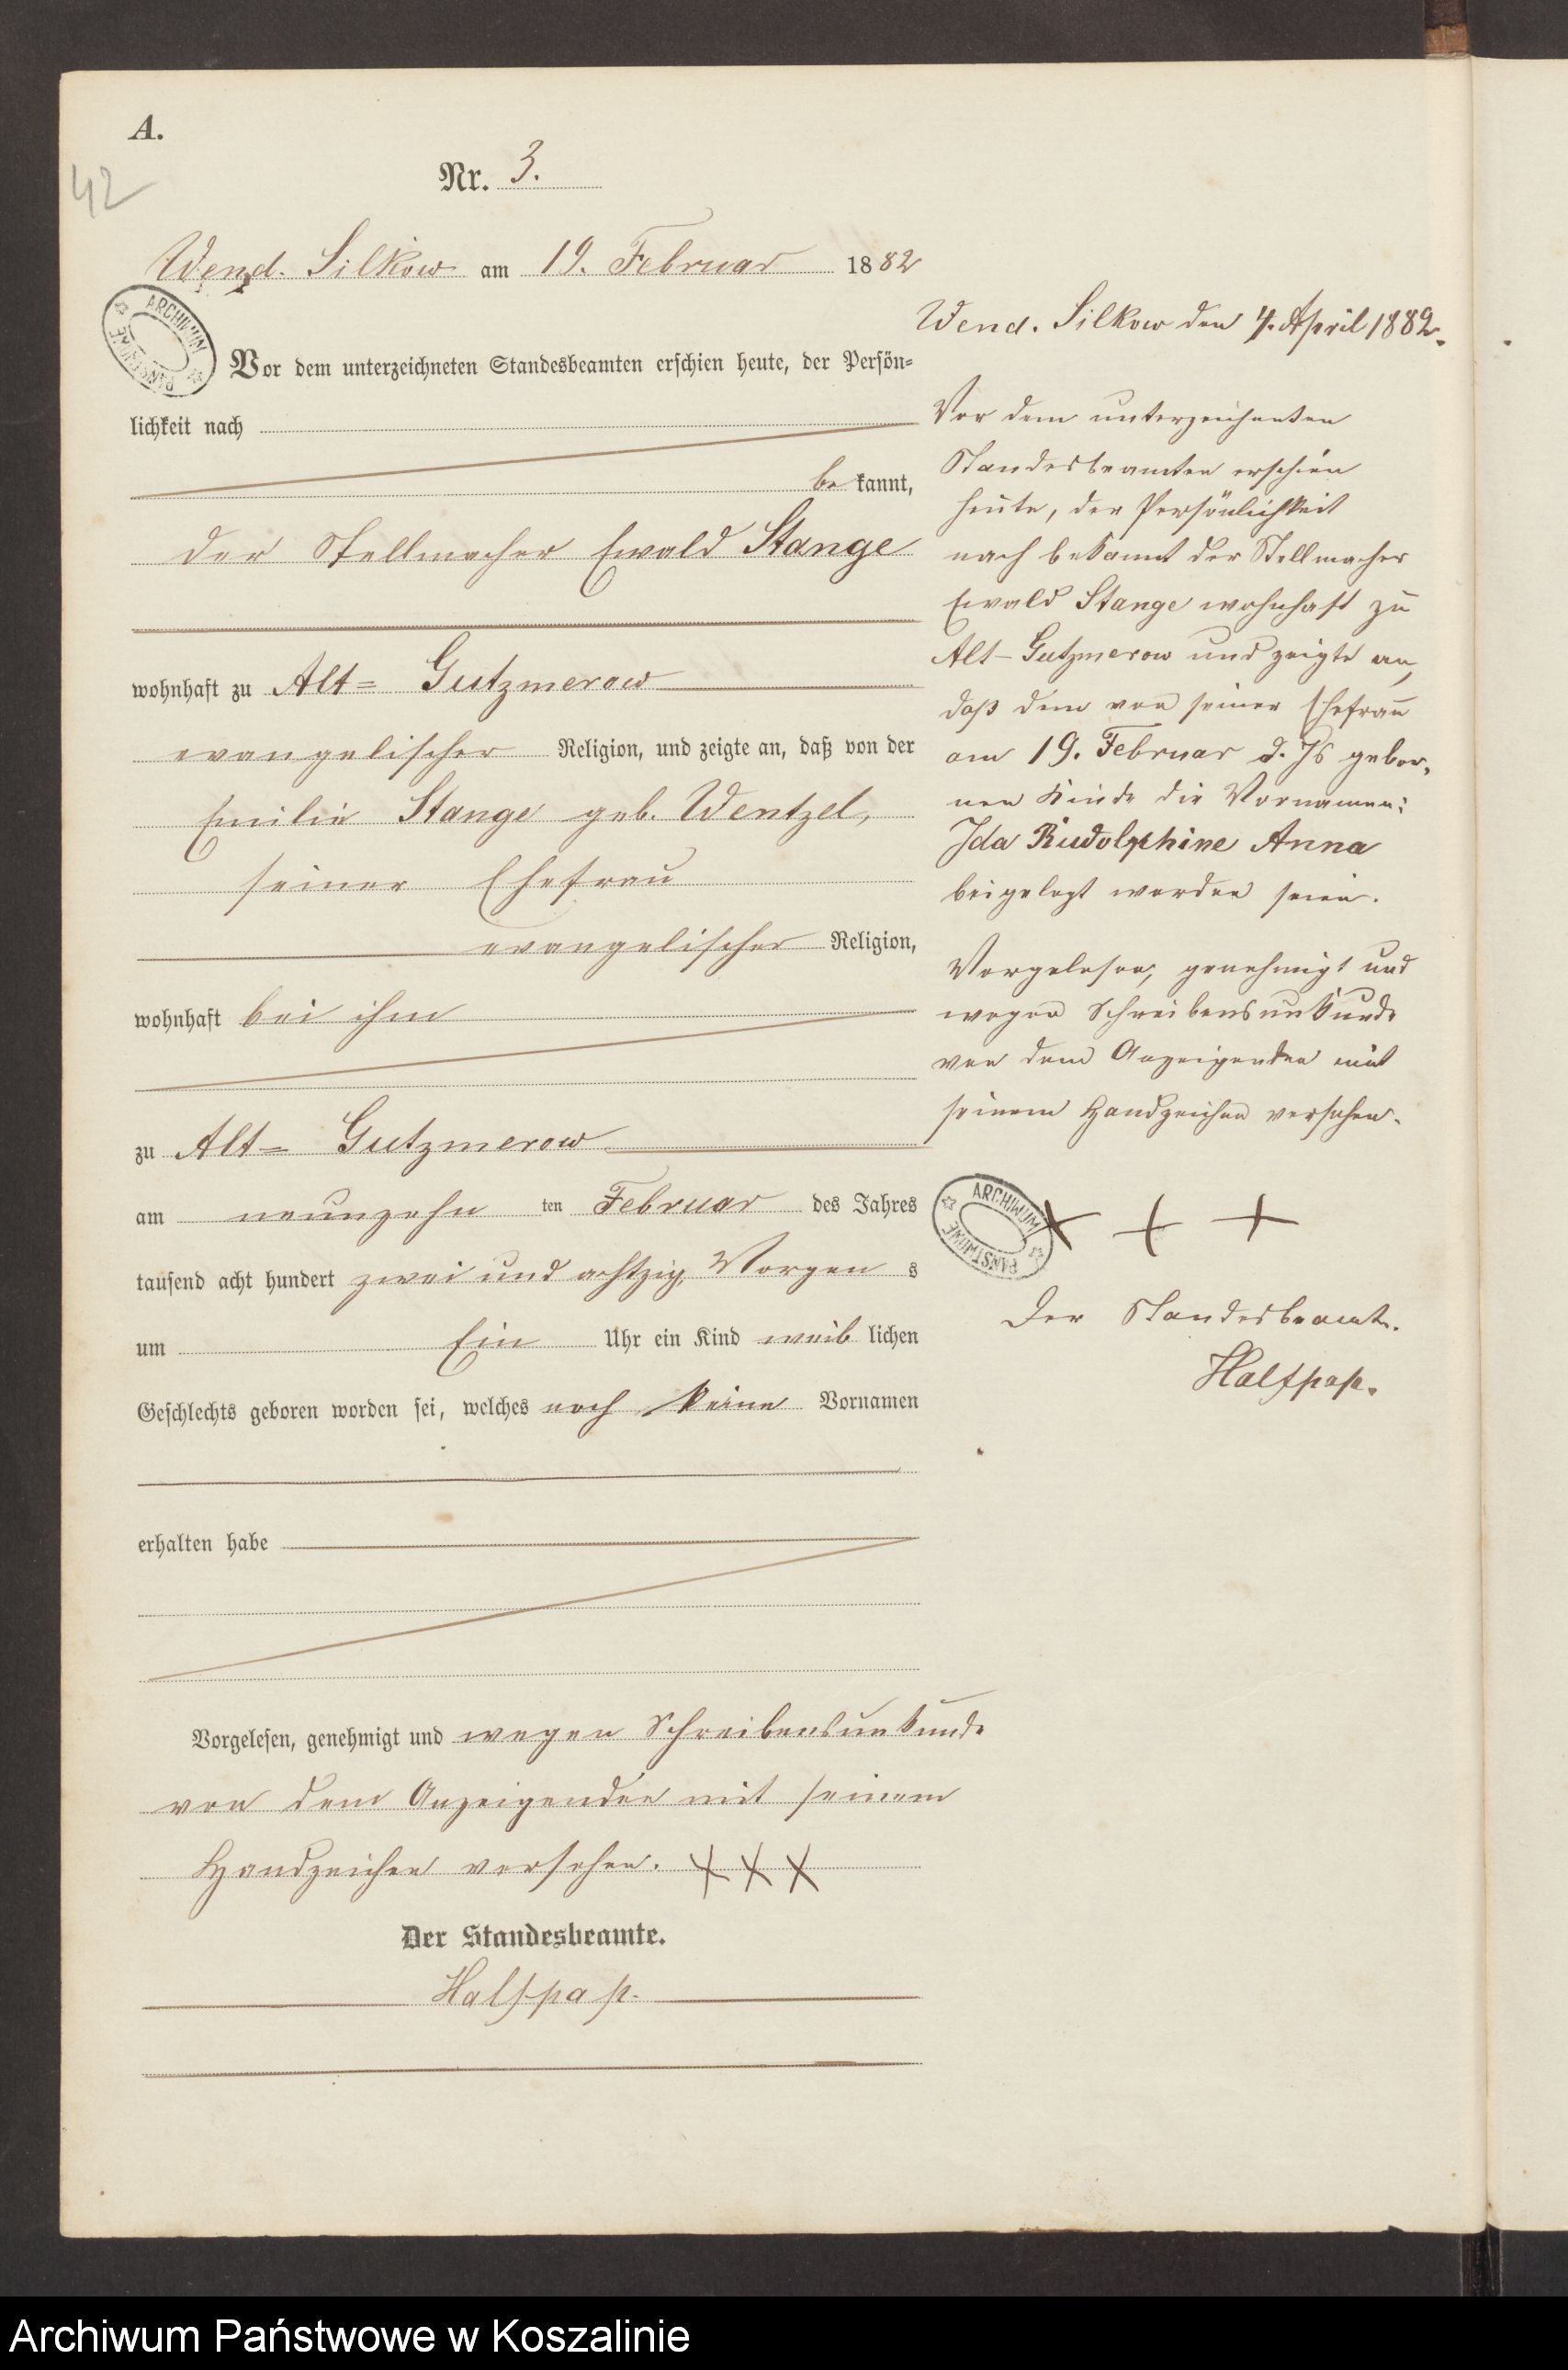 A.
42
Nr. 3.
Wend. Silkow am 19. Februar 1882
ARCHIWUM PAŃSTWOWE
Vor dem unterzeichneten Standesbeamten erschien heute, der Persön=
lichkeit nach
be kannt,
der Stellmacher Ewald Stange
wohnhaft zu Alt= Gutzmerow
evangelischer Religion, und zeigte an, daß von der
Emilie Stange geb. Wentzel,
seiner Ehefrau
evangelischer Religion,
wohnhaft bei ihm
zu Alt= Gutzmerow
am neunzehn ten Februar des Jahres
tausend acht hundert zwei und achtzig, Morgen s
um Ein Uhr ein Kind weib lichen
Geschlechts geboren worden sei, welches noch keine Vornamen
erhalten habe
Vorgelesen, genehmigt und wegen Schreibensunkunde
von dem Anzeigenden mit seinem
Handzeichen versehen. + + +
Der Standesbeamte.
Halfpap.
Wend. Silkow den 4. April 1882.
Vor dem unterzeichneten
Standesbeamten erschien
heute, der Persönlichkeit
nach bekannt der Stellmacher
Ewald Stange wohnhaft zu
Alt- Gutzmerow und zeigte an,
daß dem von seiner Ehefrau
am 19. Februar d. Js gebor,
nen Kinde die Vornamen:
Ida Rudolphine Anna
beigelegt worden seien.
Vorgelesen, genehmigt und
wegen Schreibensunkunde
von dem Anzeigenden mit
seinem Handzeichen versehen.
ARCHIWUM PAŃSTWOWE
+ + +
Der Standesbeamte.
Halfpap.
Archiwum Państwowe w Koszalinie